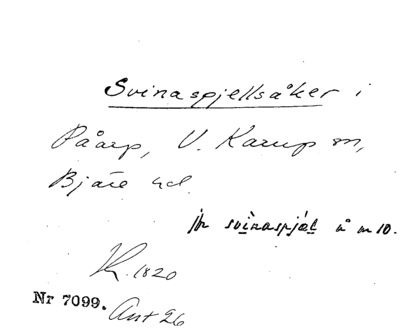 Svinaspjellsåker i
Påarp, V. Karup sn,
Bjäre hd.
jfr svinaspjäl å n 10.
K. 1820
Nr 7099. Ant 26